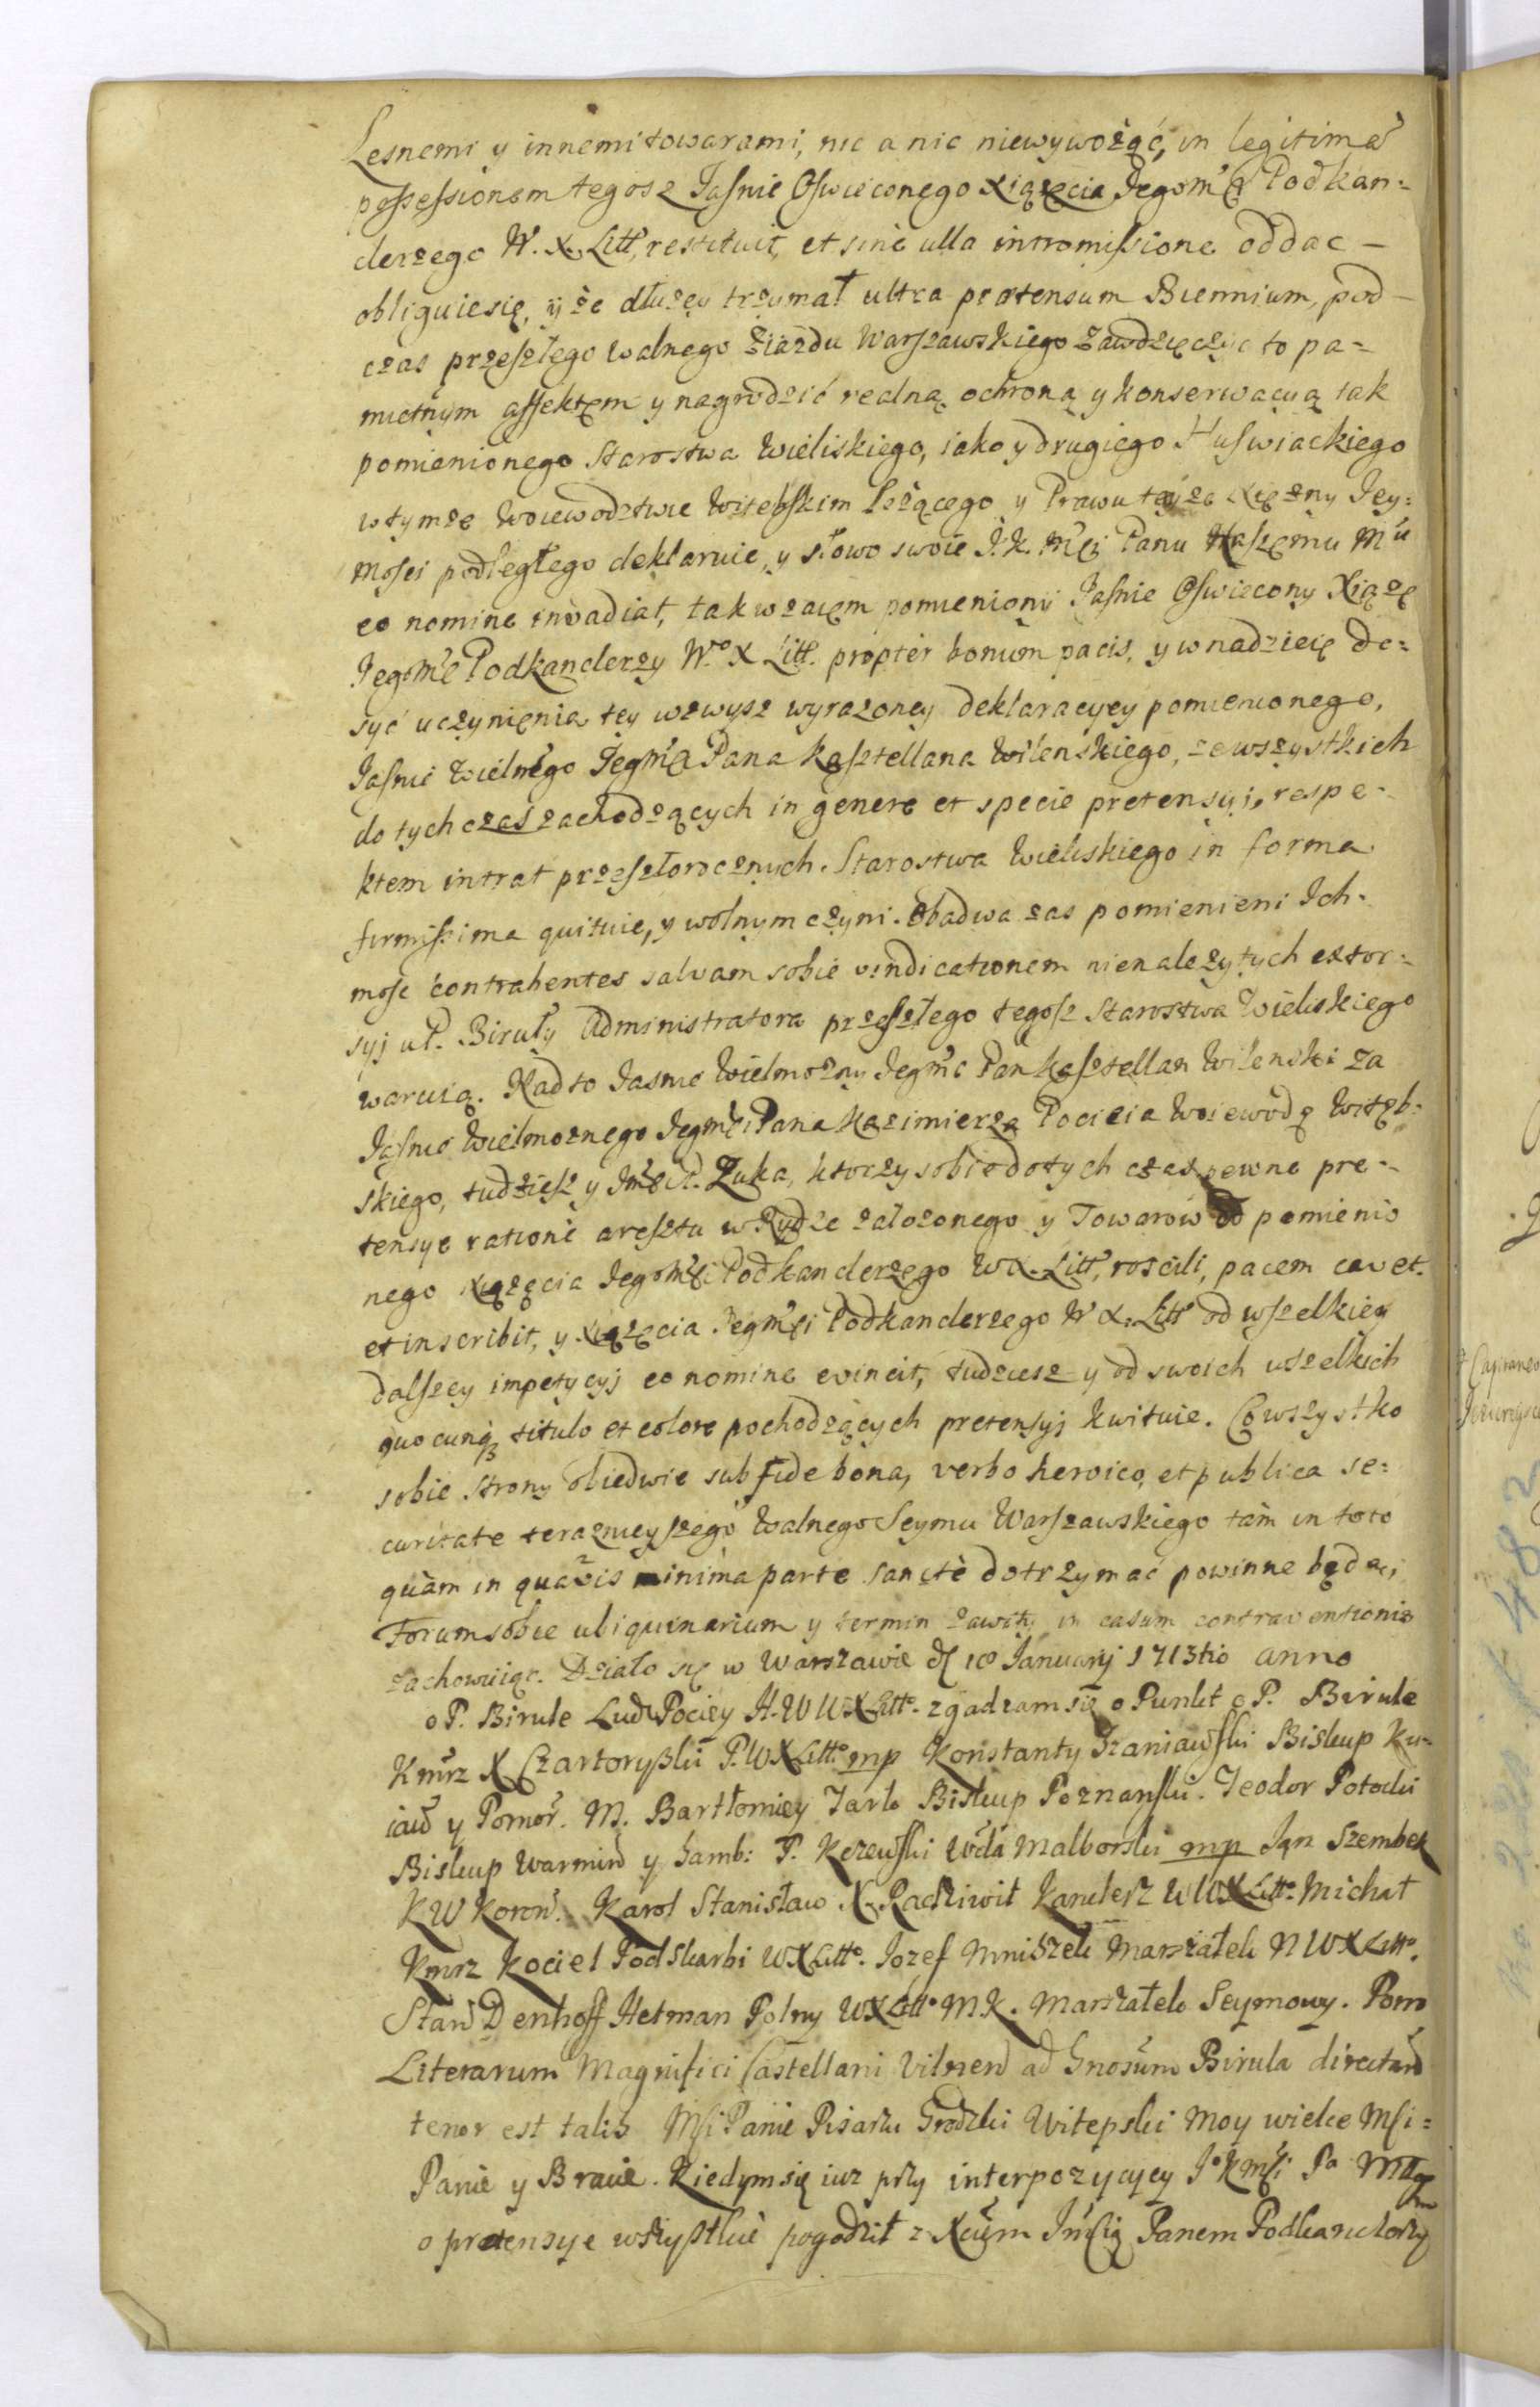 Lesnemi y innemi towarami, nic a nic niewywożąć, in legitimã
possessionem tegosz Jasnie Oswieconego Xiążęcia Jegomci Podkan=
clerzego W. X. Litt, restituit, et sine ulla intromissione oddac –
obliguie się, y że dłużey trzymał ultra prætensum Biennium, pod-
czas przeszłego walnego ziazdu Warszawskiego zawdzięczyc to pa=
mietnym affektem y nagrodzić realną ochroną y konserwacyą tak
pomienionego Starostwa Wieliskiego, iako y drugiego Huswiackiego
w tymże Woiewodztwie Witebskim lezącego y Prawu teyże Xięzny Jey=
mosci podległego deklaruie, y słowo swoie J. K. Mci Panu Naszemu Mu
eo nomine invadiat, tak wzaiem pomieniony Jasnie Oswiecony Xiąze
Jegomc Podkanclerzy W.o X Litt. propter bonum pacis, y w nadzieię do=
syć uczynienia tey wzwysz wyrazoney deklaracyey pomienionego,
Jasnie Wielm̃ego Jegmci Pana Kasztellana Wilenskiego, ze wszystkich
do tych czas zachodzących in genere et specie pretensyi, respe-
ktem intrat przeszłorocznych Starostwa Wieliskiego in forma
firmissima quituie, y wolnym czyni. Obadwa zas pomienieni Ich-
mosc contrahentes salvam sobie vindicationem nienalezytych extor=
syj ut. Biruły Administratora przeszłego tegosz Starostwa Wieliskiego
waruią. Nadto Jasnie Wielmożny Jegmc Pan Kasztellan Wilenski za
Jasnie Wielmoznego Jegmci Pana Kazimierza Pocieia Woiewodę Witeb=
skiego, tudziesz y Jmci P. Zuka, ktorzy sobie do tych czas pewne pre-
tensye ratione aresztu w Rydze załozonego y Towarow do pomienio
nego Xiążęcia Jegomci Podkanclerzego WX. Litt, roscili, pacem cavet
et inscribit, y Xiążęcia Jegmci Podkanclerzego W X. Litt od wszelkiey
dalszey impetycyj eo nomine evincit, tudziesz y od swoich wszelkich
quocunq3 titulo et colore pochodzących pretensyj kwituie. Co wszystko
sobie Strony obiedwie sub fide bona, verbo heroico, et publica se=
curitate teraznieyszego Walnego Seymu Warszawskiego tàm in toto
quàm in quavis minima parte sanctè dotrzymać powinne będą,
Forum sobie ubiquinarium y termin zawity in casum contraventionis
zachowuiąc. Działo się w Warszawie d. 10 Januarij 1713tio anno
o P. Birule Lud. Pociey H. W WXLitto. zgadzam się o Punkt o P. Birule
Kmrz X Czartoryski P. WXLitto. mp Konstanty Szaniawski Biskup Ku=
iaw y Pomor. M. Bartłomiey Tarło Biskup Poznanski. Teodor Potocki
Biskup Warmin y Samb: P. Kczewski Wda Malborski mp Jan Szembek
KW Koron. Karol Stanisław X. Radziwił Kanclerz WWXLitto. Michał
Kmrz Kociel Podskarbi WXLitto. Jozef Mniszek Marszałek NWXLitto.
Stan Denhoff Hetman Polny WXLitto MK. Marszałek Seymowy. Porro
Literarum Magnifici Castellani Vilnen ad Gnosum Birula directarũ
tenor est talis Msi Panie Pisarzu Grodzki Witepski Moy wielce Msi=
Panie y Bracie. Kiedym się iuz przy interpozycyey Jo KMsi Pa Mgo
o pretensye wszystkie pogodził z Xciem Jmcią Panem Podkanclerzy